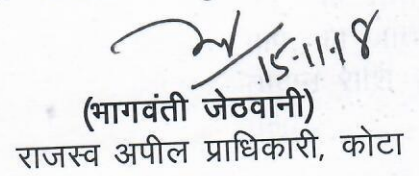 15.11.18
(भागवंती जेठवानी)
राजस्व अपील प्राधिकारी, कोटा